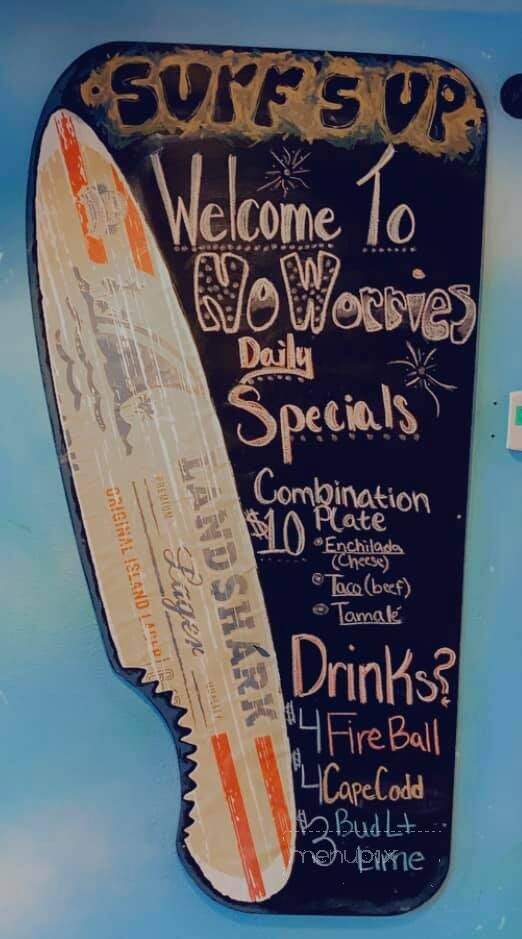 SURF'S UP
Welcome To
No Worries
Daily
Specials
Combination
$10 Plate
Enchilada
(Cheese)
Taco (beef)
Tamalé
Drinks?
$4 Fire Ball
$4 Cape Codd
$3 Bud Lt
Lime
menupix
PREMIUM
LANDSHARK
Lager
QUALITY
ORIGINAL ISLAND LAGER